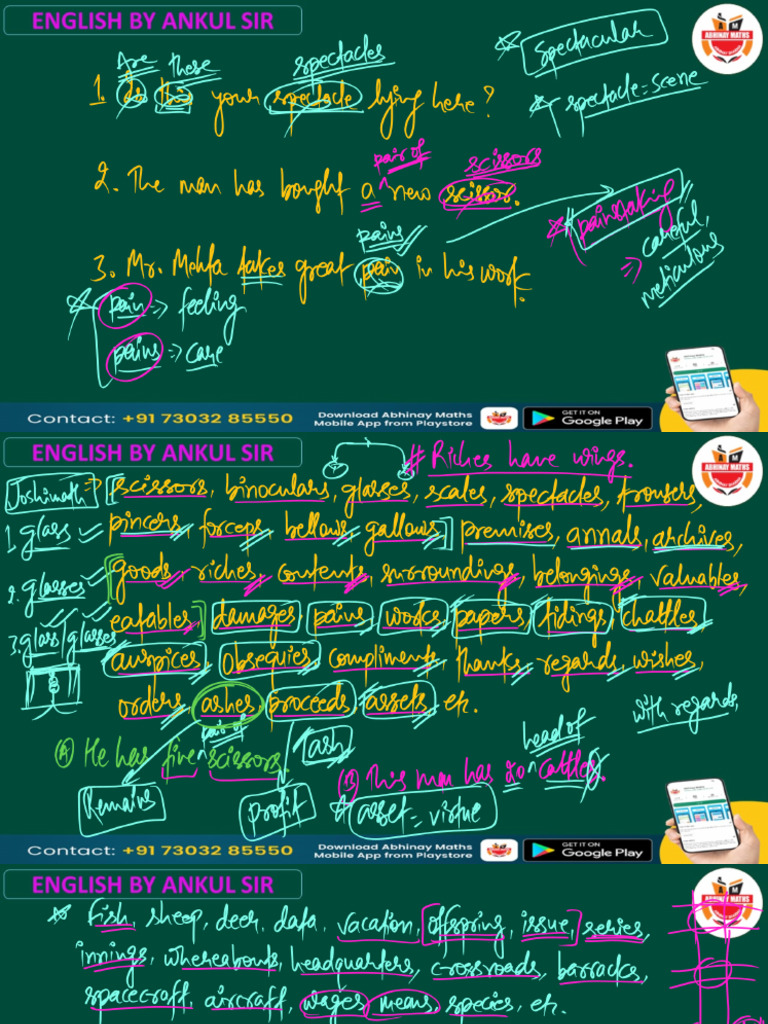 ENGLISH BY ANKUL SIR
ABHINAY MATHS
Spectacular
Are these spectacles
spectacle = scene
1. Is this your spectacle lying here?
pair of scissors
2. The man has bought a new scissor.
painstaking
careful,
meticulous
pains
3. Mr. Mehta takes great pain in his work.
pain => feeling
pains => care
Contact: +91 73032 85550
Download Abhinay Maths
Mobile App from Playstore
GET IT ON
Google Play
ENGLISH BY ANKUL SIR
# Riches have wings.
ABHINAY MATHS
Joshimath => [scissors, binoculars, glasses, scales, spectacles, trousers,
1. glass pincers, forceps, bellows, gallows] premises, annals, archives,
2. glasses [goods, riches, contents, surroundings, belongings, valuables,
eatables,] damages, pains, works, papers, tidings, chattles,
3. glass/glasses
auspices, obsequies, compliments, thanks, regards, wishes,
orders, ashes, proceeds, assets etc.
with regards,
pair of
ash
head of
(A) He has five scissors.
(B) This man has 20 cattles.
Remains
profit
asset = virtue
Contact: +91 73032 85550
Download Abhinay Maths
Mobile App from Playstore
GET IT ON
Google Play
ENGLISH BY ANKUL SIR
ABHINAY MATHS
Fish, sheep, deer, data, vacation, [offspring, issue,] series,
innings, whereabouts, headquarters, crossroads, barracks,
spacecraft, aircraft, wages, means, species, etc.